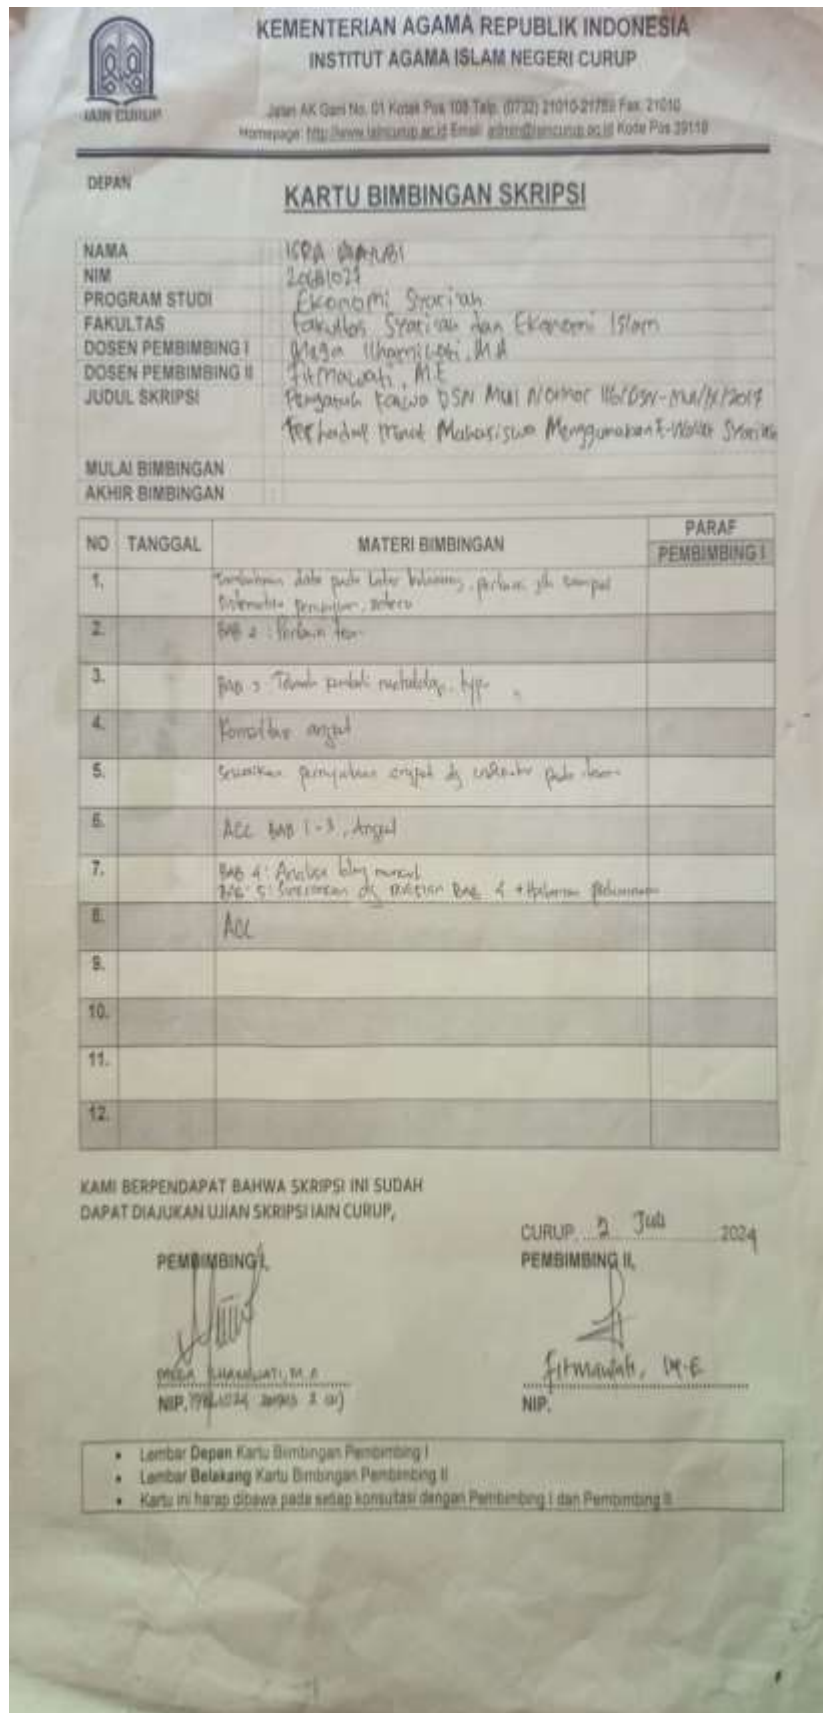 KEMENTERIAN AGAMA REPUBLIK INDONESIA
INSTITUT AGAMA ISLAM NEGERI CURUP
IAIN CURUP
Jalan AK Gani No. 01 Kotak Pos 108 Telp. (0732) 21010-21759 Fax. 21010
Homepage: http://www.iaincurup.ac.id Email: admin@iaincurup.ac.id Kode Pos 39119
DEPAN
KARTU BIMBINGAN SKRIPSI
NAMA : ISRA
NIM : 20681027
PROGRAM STUDI : Ekonomi Syari'ah
FAKULTAS : Fakultas Syari'ah dan Ekonomi Islam
DOSEN PEMBIMBING I : Mega Ilhamiwati, MA
DOSEN PEMBIMBING II : Fitmawati, ME
JUDUL SKRIPSI : Pengaruh Fatwa DSN MUI Nomor 116/DSN-MUI/IX/2017
Terhadap Minat Mahasiswa Menggunakan E-Wallet Syariah
MULAI BIMBINGAN :
AKHIR BIMBINGAN :
NO TANGGAL MATERI BIMBINGAN PARAF
PEMBIMBING I
1. data pada latar belakang, sampel
2. BAB 2 : Perbaiki teori
3. BAB 3
4. Konsultasi angket
5. Sesuaikan pernyataan angket dg indikator pada
6. ACC BAB 1-3, Angket
7. BAB 4 : Analisa
BAB 5 : BAB 4
8. ACC
9.
10.
11.
12.
KAMI BERPENDAPAT BAHWA SKRIPSI INI SUDAH
DAPAT DIAJUKAN UJIAN SKRIPSI IAIN CURUP,
CURUP, 2 Juli 2024
PEMBIMBING I, PEMBIMBING II,
MEGA ILHAMIWATI, M.A Fitmawati, M.E
NIP. NIP.
• Lembar Depan Kartu Bimbingan Pembimbing I
• Lembar Belakang Kartu Bimbingan Pembimbing II
• Kartu ini harap dibawa pada setiap konsultasi dengan Pembimbing I dan Pembimbing II